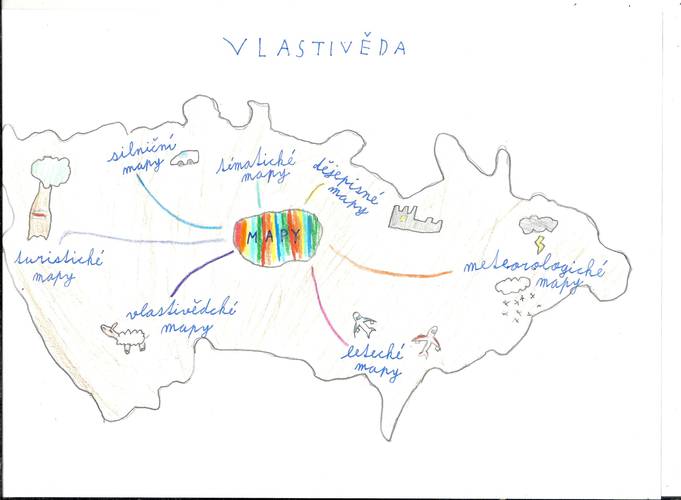 VLASTIVĚDA
silniční
mapy
tématické
mapy
dějepisné
mapy
MAPY
turistické
mapy
meteorologické
mapy
vlastivědcké
mapy
letecké
mapy